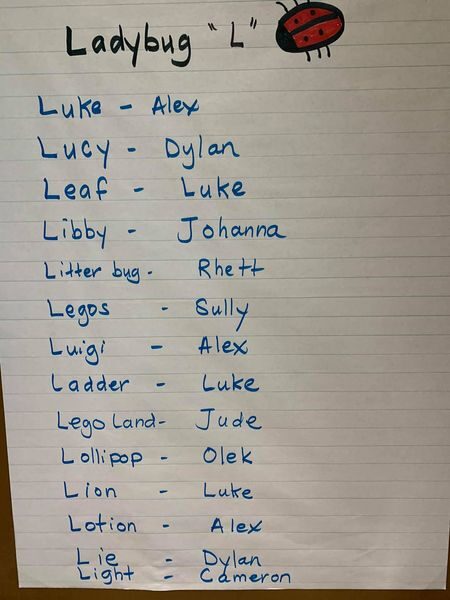 Ladybug "L"
Luke - Alex
Lucy - Dylan
Leaf - Luke
Libby - Johanna
Litter bug - Rhett
Legos - Sully
Luigi - Alex
Ladder - Luke
Lego Land - Jude
Lollipop - Olek
Lion - Luke
Lotion - Alex
Lie - Dylan
Light - Cameron